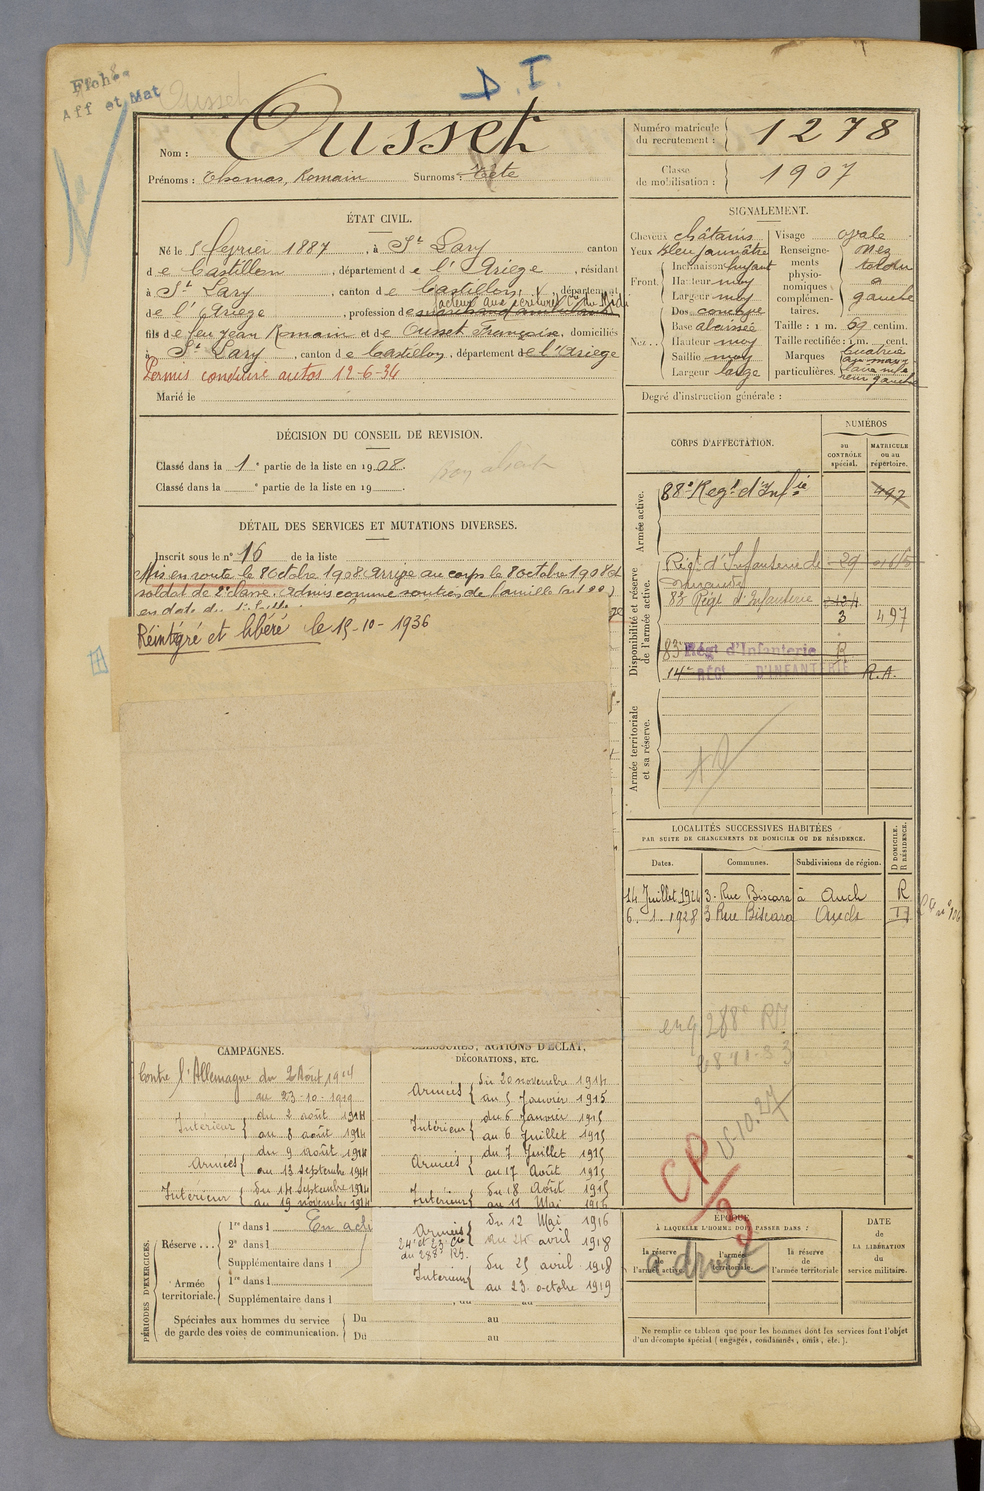 Fiche
Aff et Mat
D. I.
Ousset
Nom : Ousset
Prénoms : Thomas, Romain Surnoms : Tète
Numéro matricule du recrutement : 1278
Classe de mobilisation : 1907
ÉTAT CIVIL.
Né le 5 février 1887, à St Lary canton
de Castillon, département de l'Ariège, résidant
à St Lary, canton de Castillon, département
de l'Ariège, profession de marchand ambulant
facteur aux écritures Cie du Midi
fils de feu Jean Romain et de Ousset Françoise, domiciliés
à St Lary, canton de Castillon, département de l'Ariège
Permis conduire autos 12-6-34
Marié le
SIGNALEMENT.
Cheveux châtains
Yeux bleu jaunâtre
Front. Inclinaison fuyant
Hauteur moy
Largeur moy
Nez .. Dos concave
Base abaissée
Hauteur moy
Saillie moy
Largeur large
Visage ovale
Renseignements physionomiques complémentaires. Nez tordu à gauche
Taille : 1 m. 69 centim.
Taille rectifiée : 1 m. cent.
Marques particulières. Cicatrice au maxillaire inférieur gauche
Degré d'instruction générale :
DÉCISION DU CONSEIL DE REVISION.
Classé dans la 1e partie de la liste en 1908.
Classé dans la e partie de la liste en 19
DÉTAIL DES SERVICES ET MUTATIONS DIVERSES.
Inscrit sous le n° 16 de la liste
Mis en route le 8 Octobre 1908 Arrivé au corps le 8 octobre 1908 et
soldat de 2e classe. Admis comme soutien de famille (art 20)
en date du
Réintégré et libéré le 15-10-1936
CORPS D'AFFECTATION.
NUMÉROS
au CONTRÔLE spécial.
MATRICULE ou au répertoire.
Armée active.
88e Régt d'Infie 497
Disponibilité et réserve de l'armée active.
Régt d'Infanterie de 29
Mirande
83 Régt d'Infanterie
3 497
83 Régt d'Infanterie R
14e RÉGt D'INFANTERIE R.A.
Armée territoriale et sa réserve.
LOCALITÉS SUCCESSIVES HABITÉES
PAR SUITE DE CHANGEMENTS DE DOMICILE OU DE RÉSIDENCE.
Dates. Communes. Subdivisions de région. D DOMICILE. R RÉSIDENCE.
14 Juillet 1924 3. Rue Biscara à Auch R
6. 1. 1928 3 Rue Biscara Auch D
eng 288e RI
CP/3
15-10.27
CAMPAGNES.
Contre l'Allemagne du 2 Août 1914
au 23-10-1919
Intérieur { du 2 août 1914
au 8 août 1914
Armées { du 9 août 1914
au 13 septembre 1914
Intérieur { du 14 septembre 1914
au 19 novembre 1914
BLESSURES, ACTIONS D'ÉCLAT,
DÉCORATIONS, ETC.
Armées { du 20 novembre 1914
au 5 Janvier 1915
Intérieur { du 6 Janvier 1915
au 6 Juillet 1915
Armées { du 7 Juillet 1915
au 17 Août 1915
Intérieur { du 18 Août 1915
au 11 Mai 1916
Armées { du 12 Mai 1916
au 24 avril 1918
24e et 23e Cie
du 283e RI.
Intérieur { du 25 avril 1918
au 23. octobre 1919
PÉRIODES D'EXERCICES.
Réserve ... 1re dans l
2e dans l
Supplémentaire dans l
Armée territoriale. 1re dans l
Supplémentaire dans l , du au
Spéciales aux hommes du service de garde des voies de communication.
Du au
Du au
ÉPOQUE
À LAQUELLE L'HOMME DOIT PASSER DANS :
la réserve de l'armée active.
l'armée territoriale.
la réserve de l'armée territoriale
DATE de LA LIBÉRATION du service militaire.
a droit
Ne remplir ce tableau que pour les hommes dont les services font l'objet
d'un décompte spécial (engagés, condamnés, omis, etc.).